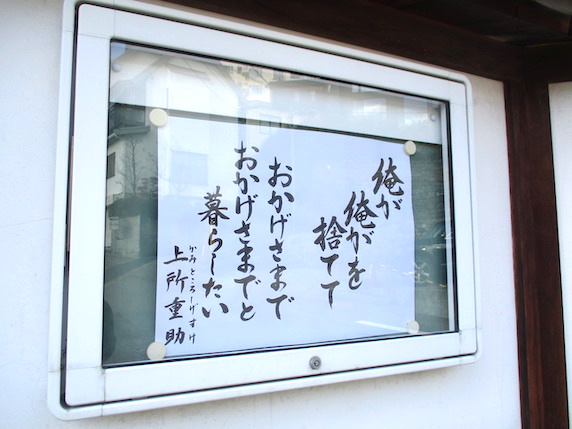 俺が
俺がを
捨てて
おかげさまで
おかげさまでと
暮らしたい
かみところしげすけ
上所重助